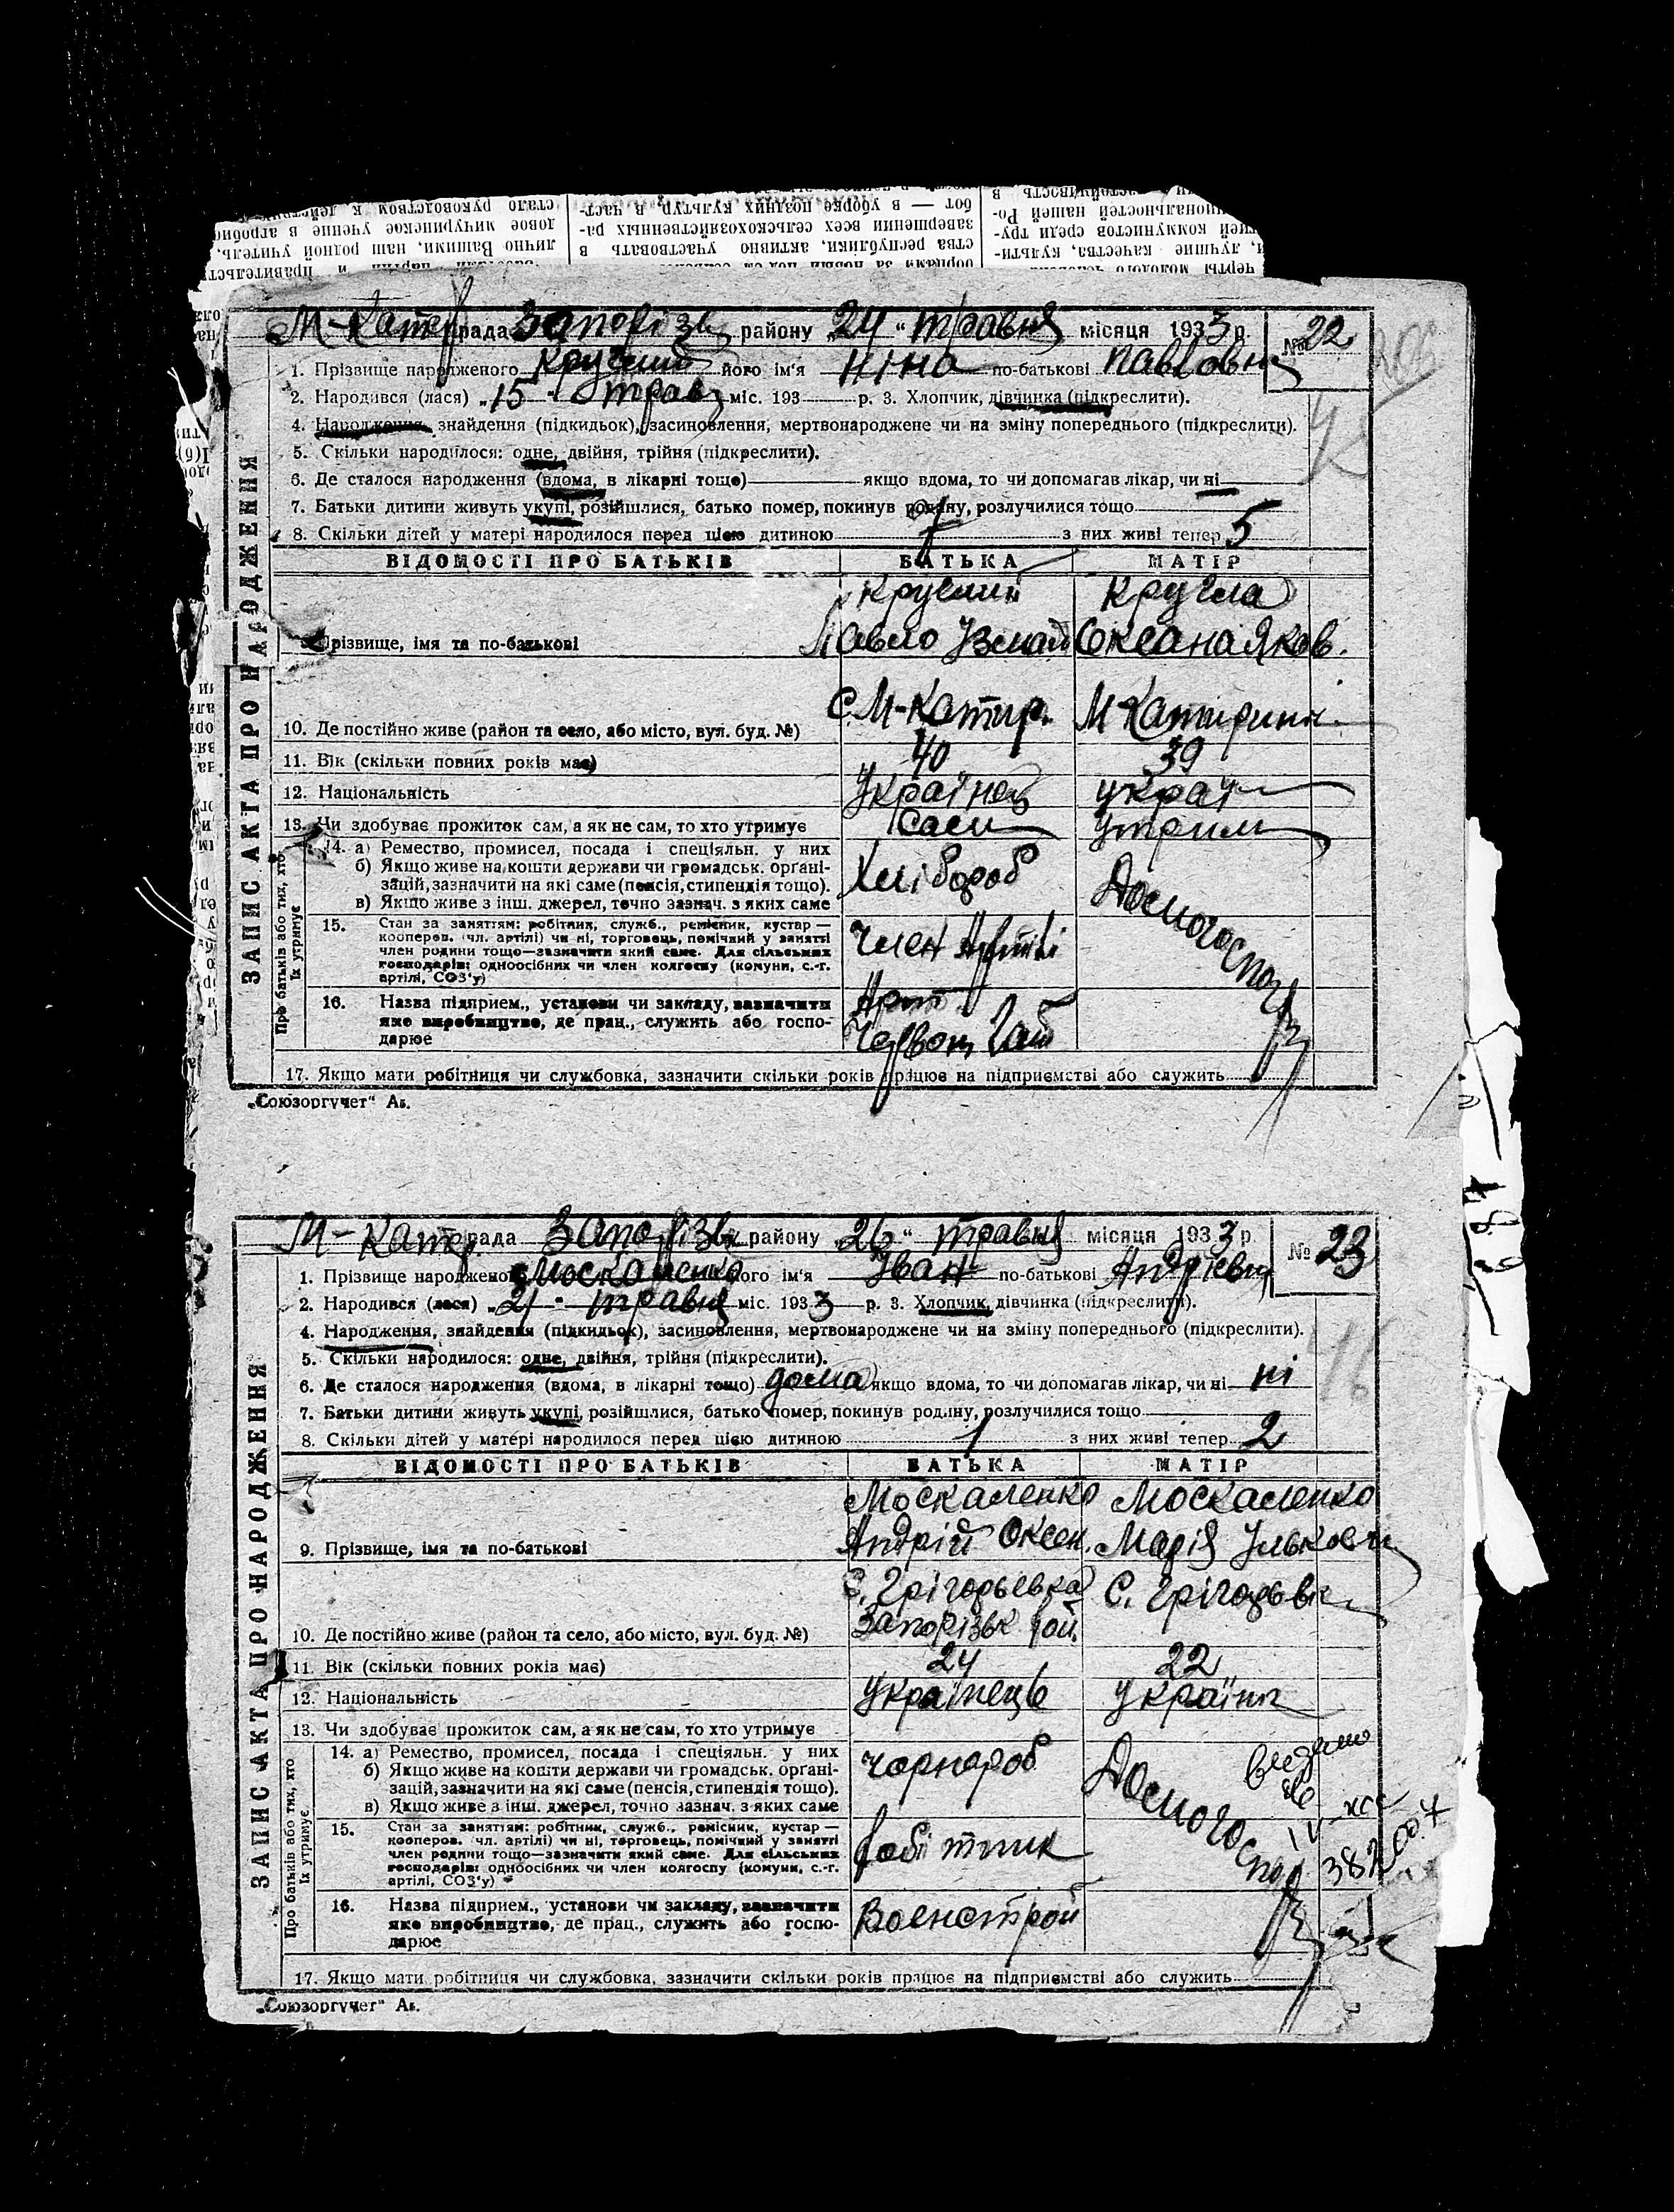 М-Катер рада Запорізьк району „24“ травня місяця 1933 р. № 22
1. Прізвище народженого Круглий його ім'я Ніна по-батькові Павловна
2. Народився (лася) „15“ трав міс. 193 р. 3. Хлопчик, дівчинка (підкреслити).
4. Народження, знайдення (підкидьок), засиновлення, мертвонароджене чи на зміну попереднього (підкреслити).
5. Скільки народилося: одне, двійня, трійня (підкреслити).
6. Де сталося народження (вдома, в лікарні тощо) якщо вдома, то чи допомагав лікар, чи ні
7. Батьки дитини живуть укупі, розійшлися, батько помер, покинув родину, розлучилися тощо
8. Скільки дітей у матері народилося перед цією дитиною 7 з них живі тепер 5
ВІДОМОСТІ ПРО БАТЬКІВ БАТЬКА МАТІР
Круглий Кругла
9. Прізвище, імя та по-батькові Павло Ізмаїл Оксана Яков.
10. Де постійно живе (район та село, або місто, вул. буд. №) С М-Катир. М-Катирин.
11. Вік (скільки повних років має) 40 39
12. Національність Українець украї
13. Чи здобуває прожиток сам, а як не сам, то хто утримує Сам утрим
14. а) Ремество, промисел, посада і спеціяльн. у них
б) Якщо живе на кошти держави чи громадськ. орґані-
зацій, зазначити на які саме (пенсія, стипендія тощо).
в) Якщо живе з інш. джерел, точно зазнач. з яких саме
Хлібороб Домогоспод
15. Стан за заняттям: робітник, служб., ремісник, кустар —
кооперов. (чл. артілі) чи ні, торговець, помічний у занятті
член родини тощо—зазначити який саме. Для сільських
господарів: одноосібних чи член колгоспу (комуни, с.-г.
артілі, СОЗ'у)
Член Артілі
16. Назва підприєм., установи чи закладу, зазначити
яке виробництво, де прац., служить або госпо-
дарює
Арт
Червон
17. Якщо мати робітниця чи службовка, зазначити скільки років працює на підприємстві або служить
„Союзоргучет“
ЗАПИС АКТА ПРО НАРОДЖЕННЯ
Про батьків або тих, хто
їх утримує
М-Катер рада Запорізьк району „26“ травня місяця 1933 р. № 23
1. Прізвище народженого Москаленко його ім'я Іван по-батькові Андрієвич
2. Народився (лася) „21“ травня міс. 1933 р. 3. Хлопчик, дівчинка (підкреслити).
4. Народження, знайдення (підкидьок), засиновлення, мертвонароджене чи на зміну попереднього (підкреслити).
5. Скільки народилося: одне, двійня, трійня (підкреслити).
6. Де сталося народження (вдома, в лікарні тощо) дома якщо вдома, то чи допомагав лікар, чи ні ні
7. Батьки дитини живуть укупі, розійшлися, батько помер, покинув родину, розлучилися тощо
8. Скільки дітей у матері народилося перед цією дитиною 1 з них живі тепер 2
ВІДОМОСТІ ПРО БАТЬКІВ БАТЬКА МАТІР
Москаленко Москаленко
9. Прізвище, імя та по-батькові Андрій Оксен. Марія Ульковн
С. Грігорьевка С. Грігорьвк
10. Де постійно живе (район та село, або місто, вул. буд. №) Запорізьк рай.
11. Вік (скільки повних років має) 24 22
12. Національність Українець україн
13. Чи здобуває прожиток сам, а як не сам, то хто утримує
14. а) Ремество, промисел, посада і спеціяльн. у них
б) Якщо живе на кошти держави чи громадськ. орґані-
зацій, зазначити на які саме (пенсія, стипендія тощо).
в) Якщо живе з інш. джерел, точно зазнач. з яких саме
Чорнороб Домогоспод
15. Стан за заняттям: робітник, служб., ремісник, кустар —
кооперов. чл. артілі) чи ні, торговець, помічний у занятті
член родини тощо—зазначити який саме. Для сільських
господарів: одноосібних чи член колгоспу (комуни, с.-г.
артілі, СОЗ'у)
робітник
16. Назва підприєм., установи чи закладу, зазначити
яке виробництво, де прац., служить або госпо-
дарює
Военстрой
17. Якщо мати робітниця чи службовка, зазначити скільки років працює на підприємстві або служить
„Союзоргучет“
ЗАПИС АКТА ПРО НАРОДЖЕННЯ
Про батьків або тих, хто
їх утримує